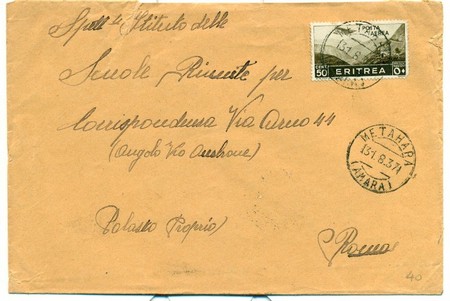 Spett.le Istituto delle
POSTA
AEREA
CENT.
50
ERITREA
Scuole Riunite per
Corrispondenza Via Arno 44
METAHARA
13.8.37
(AMARA)
(Angolo Via Aterno)
Palazzo Proprio
Roma
40